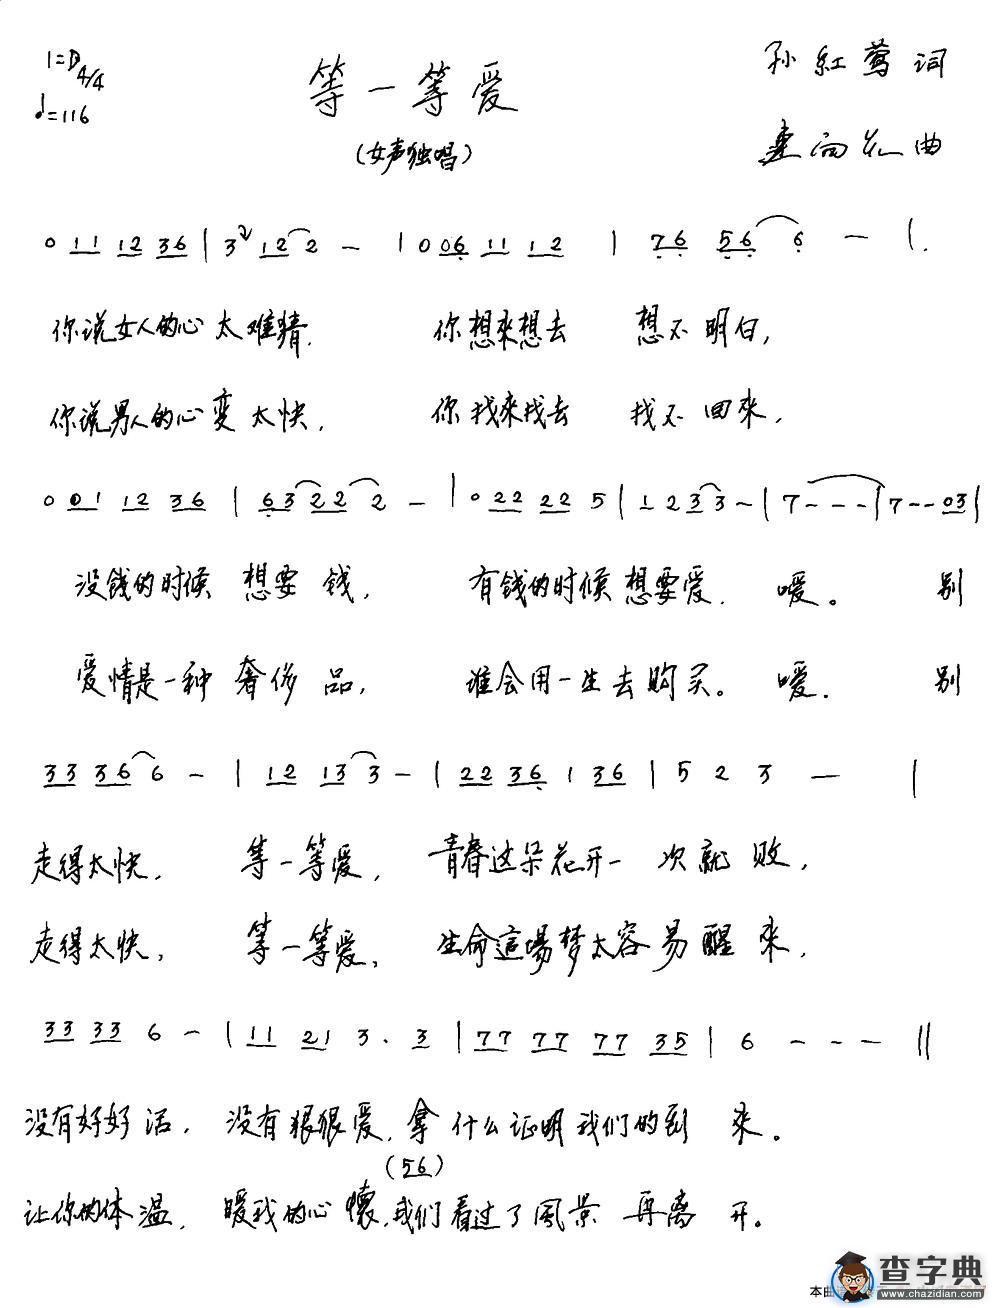 1=D 4/4
♩=116
等一等爱
(女声独唱)
孙红莺词
曲
0 11 12 36 | 3 12 2 - | 0 06 11 12 | 76 56 6 - |
你说女人的心太难猜, 你想来想去 想不明白,
你说男人的心变太快, 你找来找去 找不回來,
0 01 12 36 | 63 22 2 - | 0 22 22 5 | 1 2 3 3 - | 7 - - - | 7 - - 03 |
没钱的时候 想要钱, 有钱的时候想要爱, 嗳。 别
爱情是一种奢侈品, 谁会用一生去购买。嗳. 别
33 36 6 - | 12 13 3 - | 22 36 1 36 | 5 2 3 - |
走得太快, 等一等爱, 青春这朵花开一次就败,
走得太快, 等一等爱, 生命這場梦太容易醒来,
33 33 6 - | 11 21 3 . 3 | 77 77 77 35 | 6 - - - ||
没有好好活, 没有狠狠爱, 拿什么证明我们的到来。
(56)
让你的体温, 暖我的心懷, 我们看过了風景再離开。
本曲
查字典
www.chazidian.com